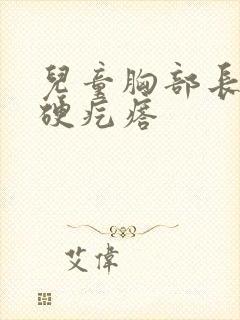 兒童胸部長
硬疙瘩
艾偉